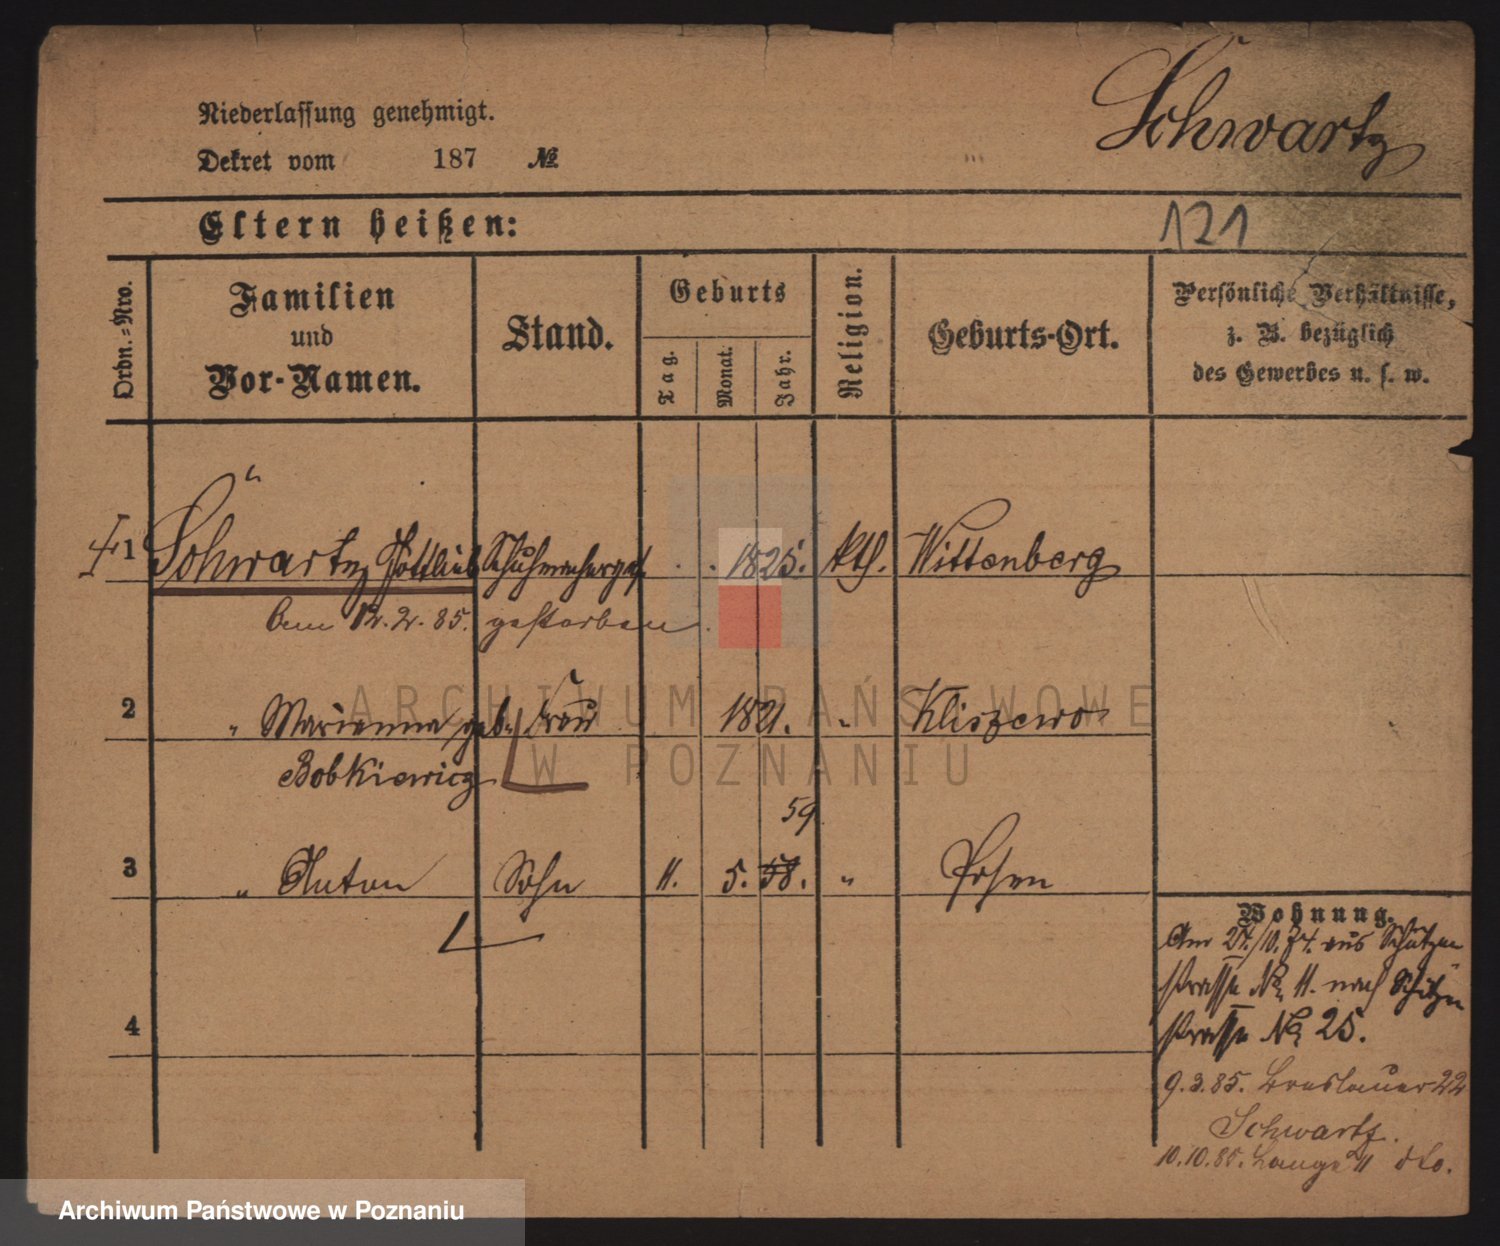 Schwartz
Niederlassung genehmigt.
Dekret vom 187 №
Eltern heißen:
121
Ordn.-Nro.
Familien und Vor-Namen.
Stand.
Geburts
Tag.
Monat.
Jahr.
Religion.
Geburts-Ort.
Persönliche Verhältnisse,
z. B. bezüglich
des Gewerbes u. s. w.
1 Schwartz Gottlieb Schuhmacherges. 1825. kth. Wittenberg
Am 12.2.85. gestorben.
2 " Marianna geb. Frau 1821. " Kliszewo
Bobkiewicz
59
3 " Anton Sohn 11. 5. 58. " Posen
4
Wohnung.
Am 27./10. 74. aus Schützen
strasse No 11. nach Schützen
strasse No 25.
9.3.85. Breslauer 22
Schwartz.
10.10.85. Lange 11 dto.
ARCHIWUM PAŃSTWOWE
W POZNANIU
Archiwum Państwowe w Poznaniu